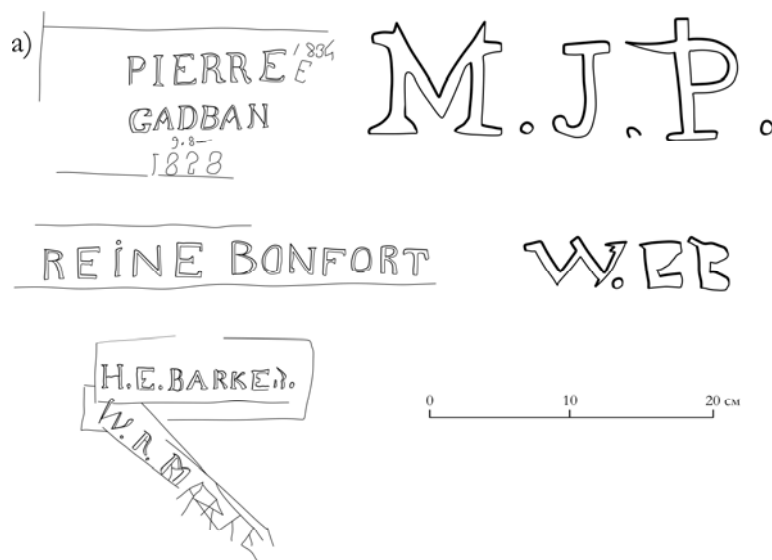 a)
PIERRE 1834
E
GADBAN
1828
M.J.P.
REINE BONFORT
W.EB
H.E.BARKER.
W.A.
0 10 20 см